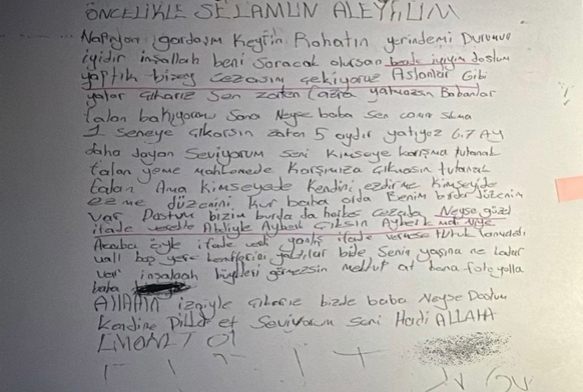 ÖNCELİKLE SELAMUN ALEYKUM
Napıyon gardaşım Keyfin Rahatın yerindemi Durumun
iyidir inşallah beni soracak olursan bende iyiyim dostum
yaptık bizeng cezasını çekiyoruz Aslanlar Gibi
yatar çıkarız Sen zaten fazla yatmazsın Babanlar
falan bakıyorlar Sana Neyse baba Sen canını sıkma
1 seneye çıkarsın zaten 5 aydır yatıyoz 6.7 Ay
daha dayan Seviyorum seni Kimseye karışma tutanak
falan yeme mahkemede Karşımıza çıkmasın tutanak
falan Ama kimseyede kendini ezdirme kimseyide
ezme düzenini kur baba orda Benim burda düzenim
var Dostum bizim burda da herkes cezada Neyse güzel
ifade vesette Abiliyle Ayberk Çıksın Ayberk niye
Acaba öyle ifade yanlış ifade vermese tutuk lanmazdı
vall hap yere bide Senin yaşına ne kadar
var insalaah görmezsin mektup at bana foto yolla
baba
ALLAHIN izniyle çıkarız bizde baba Neyse Dostum
Kendine Dikkat et Seviyorum Seni Hadi ALLAHA
EMANET Ol